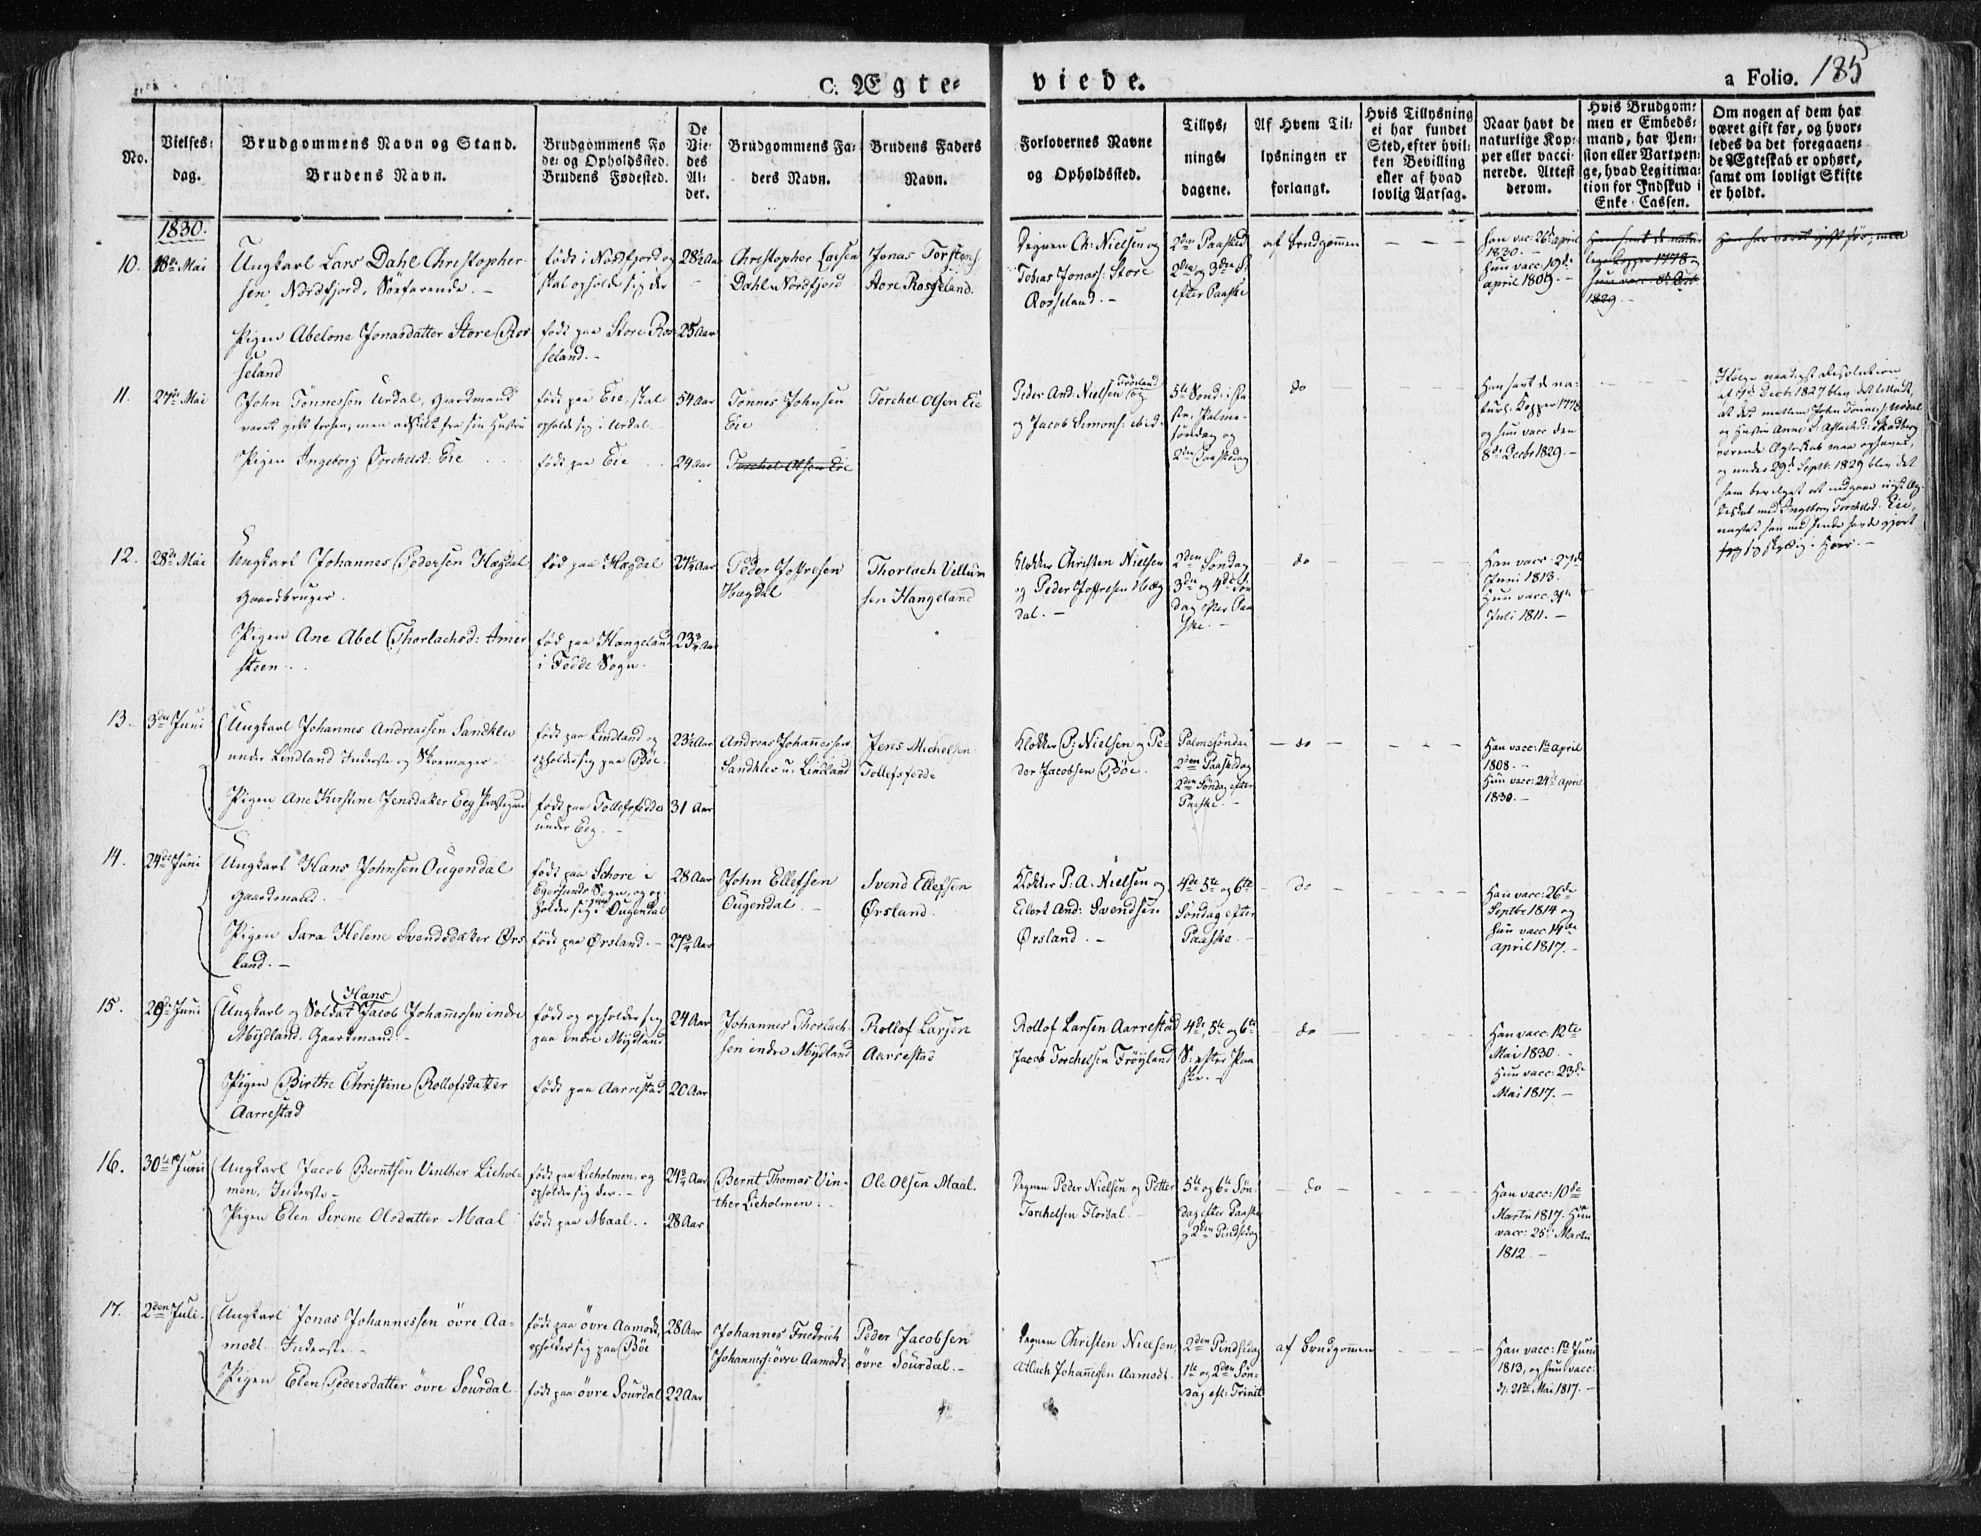 C. Ægte-
viede.
a Folio. 185
No.
Vielses-
dag.
Brudgommens Navn og Stand.
Brudens Navn.
Brudgommens Fø
de- og Opholdssted.
Brudens Fødested.
De
Vie-
des
Al-
der.
Brudgommens Fa-
ders Navn.
Brudens Faders
Navn.
Forlovernes Navne
og Opholdssted.
Tillys-
nings-
dagene.
Af Hvem Til-
lysningen er
forlangt.
Hvis Tillysning
ei har fundet
Sted, efter hvil-
ken Bevilling
eller af hvad
lovlig Aarsag.
Naar havt de
naturlige Kop-
per eller vacci-
nerede. Attest
derom.
Hvis Brudgom-
men er Embeds-
mand, har Pen-
sion eller Vartpen-
ge, hvad Legitima-
tion for Indskud i
Enke-Cassen.
Om nogen af dem har
været gift før, og hvor-
ledes da det foregaaen-
de Ægteskab er ophørt,
samt om lovligt Skifte
er holdt.
1830.
10.
18de Mai
Ungkarl Lars Dahl Christopher-
sen Nordfjord, Søefarende. -
Pigen Abelone Jonasdatter Store Ros
seland
født i Nordfjord og
skal opholde sig der
født paa Store Ros-
seland. -
28½ Aar
25 Aar
Christopher Larsen
Dahl Nordfjord
Jonas Torstens.
Store Rosseland.
Degnen Ch: Nielsen og
Tobias Jonass: Store
Rosseland. -
2den Paasked
2den og 3die S.
efter Paaske
af Brudgommen
Han vac: 26de April
1830. -
Hun vacc: 19de
April 1809. -
Han havt de natur
lige Kopper 1778 og
Hun vacc. 8de Dcbr
1829. -
Han har været gift før, men
11.
27de Mai
John Tønnesen Urdal, Gaardmand
været gift forhen, men adskilt fra sin Hustru
Pigen Ingeborg Torchelsd: Eie
født paa Eie, skal
opholde sig i Urdal
født paa Eie
54 Aar
24 Aar
Tønnes Johnsen
Eie
Torchel Olsen Eie
Torchel Olsen Eie
Peder And. Nielsen Frøiland
og Jacob Simons: ibid.
5te Sønd: i Fa-
sten, Palme-
søndag og
2den Paaskedag
do
Han havt de na-
turl. Kopper 1778
og hun vacc den
8de Decbr 1829. -
Ifølge naadigst Resolution
af 7de Decbr. 1827 blev det tilladt,
at det mellem John Tønnes: Urdal
og Hustru Anne Aslachsd: Skadberg
værende Ægteskab maa ophæves,
og under 29de Septb: 1829 blev det
ham bevilget at indgaae nyt Æg-
teskab med Ingeborg Torchelsd. Eie,
uagtet han med hende havde gjort
sig skyldig i Hoer. -
12.
28de Mai
Ungkarl Johannes Pedersen Hægdal
Gaardbruger.
Pigen Ane Abel Thorlachsd: Amer
steen
fød paa Hægdal
fød paa Hangeland
i Fedde Sogn.
27¼ Aar
23¾ Aar
Peder Joffresen
Hægdal
Thorlach Villum
sen Hangeland
Klokker Christen Nielsen
og Peder Joffresen Hæg
dal. -
2den Søndag
3die og 4de Søn
dag efter Paa
ske. -
do
Han vacc: 27de
Juni 1813.
Hun vacc: 31te
Juli 1811. -
13.
3die Juni
Ungkarl Johannes Andreassen Sandklev
under Lindland Inderste og Skoemager.
Pigen Ane Kirstine Jensdatter Eeg
født paa Lindland og
opholder sig paa Bøe
født paa Tollefsfedde
under Eeg. -
23½ Aar
31 Aar
Andreas Johannessen
Sandklev u. Lindland
Jens Michelsen
Tollefsfedde
Klokker C: Nielsen og Pe-
der Jacobsen Bøe.
Palmesøndag
2den Paaskedag
2den Søndag efter
Paaske. -
do
Han vacc: 1te April
1808. -
Hun vacc: 24de April
1830. -
14.
24de Juni
Ungkarl Hans Johnsen Ougendal
Gaardmand.
Pigen Sara Helene Svendsdatter Ørs
land. -
født paa Schore i
Egersunds Sogn, og op-
holder sig i Ougendal
født paa Ørsland. -
28 Aar
27¾ Aar
John Ellefsen
Ougendal
Svend Ellefsen
Ørsland.
Klokker P: A: Nielsen og
Eilert And: Svendsen
Ørsland. -
4de 5te og 6te
Søndag efter
Paaske. -
do
Han vacc: 26de
Septbr 1814 og
Hun vacc 14de
April 1817. -
15.
29de Juni
Ungkarl og Soldat Hans Jacob Johannessen indre
Mydland, Gaardmand. -
Pigen Birthe Christine Rollofsdatter
Aarrestad
født og opholder sig
paa indre Mydland
født paa Aarrestad
24 Aar
20 Aar
Johannes Thorlach-
sen indre Mydland
Rollof Larsen
Aarrestad
Rollof Larsen Aarrestad
Jacob Torchelsen Frøyland
4de, 5te og 6te
S: efter Paa-
ske. -
do
Han vacc: 12te
Mai 1830. -
Hun vacc: 23de
Mai 1817. -
16.
30te Juni
Ungkarl Jacob Berntsen Vinther Lieehol-
men, Inderste -
Pigen Elen Serene Olsdatter Maal
født paa Lieholmen, og
opholder sig der. -
født paa Maal. .
24¾ Aar
28 Aar
Bernt Thomas Vin-
ther Lieholmen. -
Ole Olsen Maal.
Degnen Peder Nielsen og Petter
Torchelsen Flordal. -
5te og 6te Søn-
dag efter Paaske
og 2den Pindsedag
do
Han vacc: 10de
Marts 1817. Hun
vacc: 25de Marts
1812. -
17.
2den Juli.
Ungkarl Jonas Johannessen øvre Aa-
modt. Inderste. -
Pigen Elen Pedersdatter øvre Sourdal.
født paa øvre Aamodt,
opholder sig paa Bøe
født paa øvre Sourdal
28 Aar
22 Aar
Johannes Friedrich
Johanness: øvre Aamodt
Peder Jacobsen
øvre Sourdal. -
Degnen Christen Nielsen,
Atlach Johannessen Aamodt.
2den Pindsedag
1te og 2den Søn-
dag eft: Trinit
af Brudgommen
Han vacc: 1te Juni
1813, og hun vacc:
d: 21de Mai 1817. -